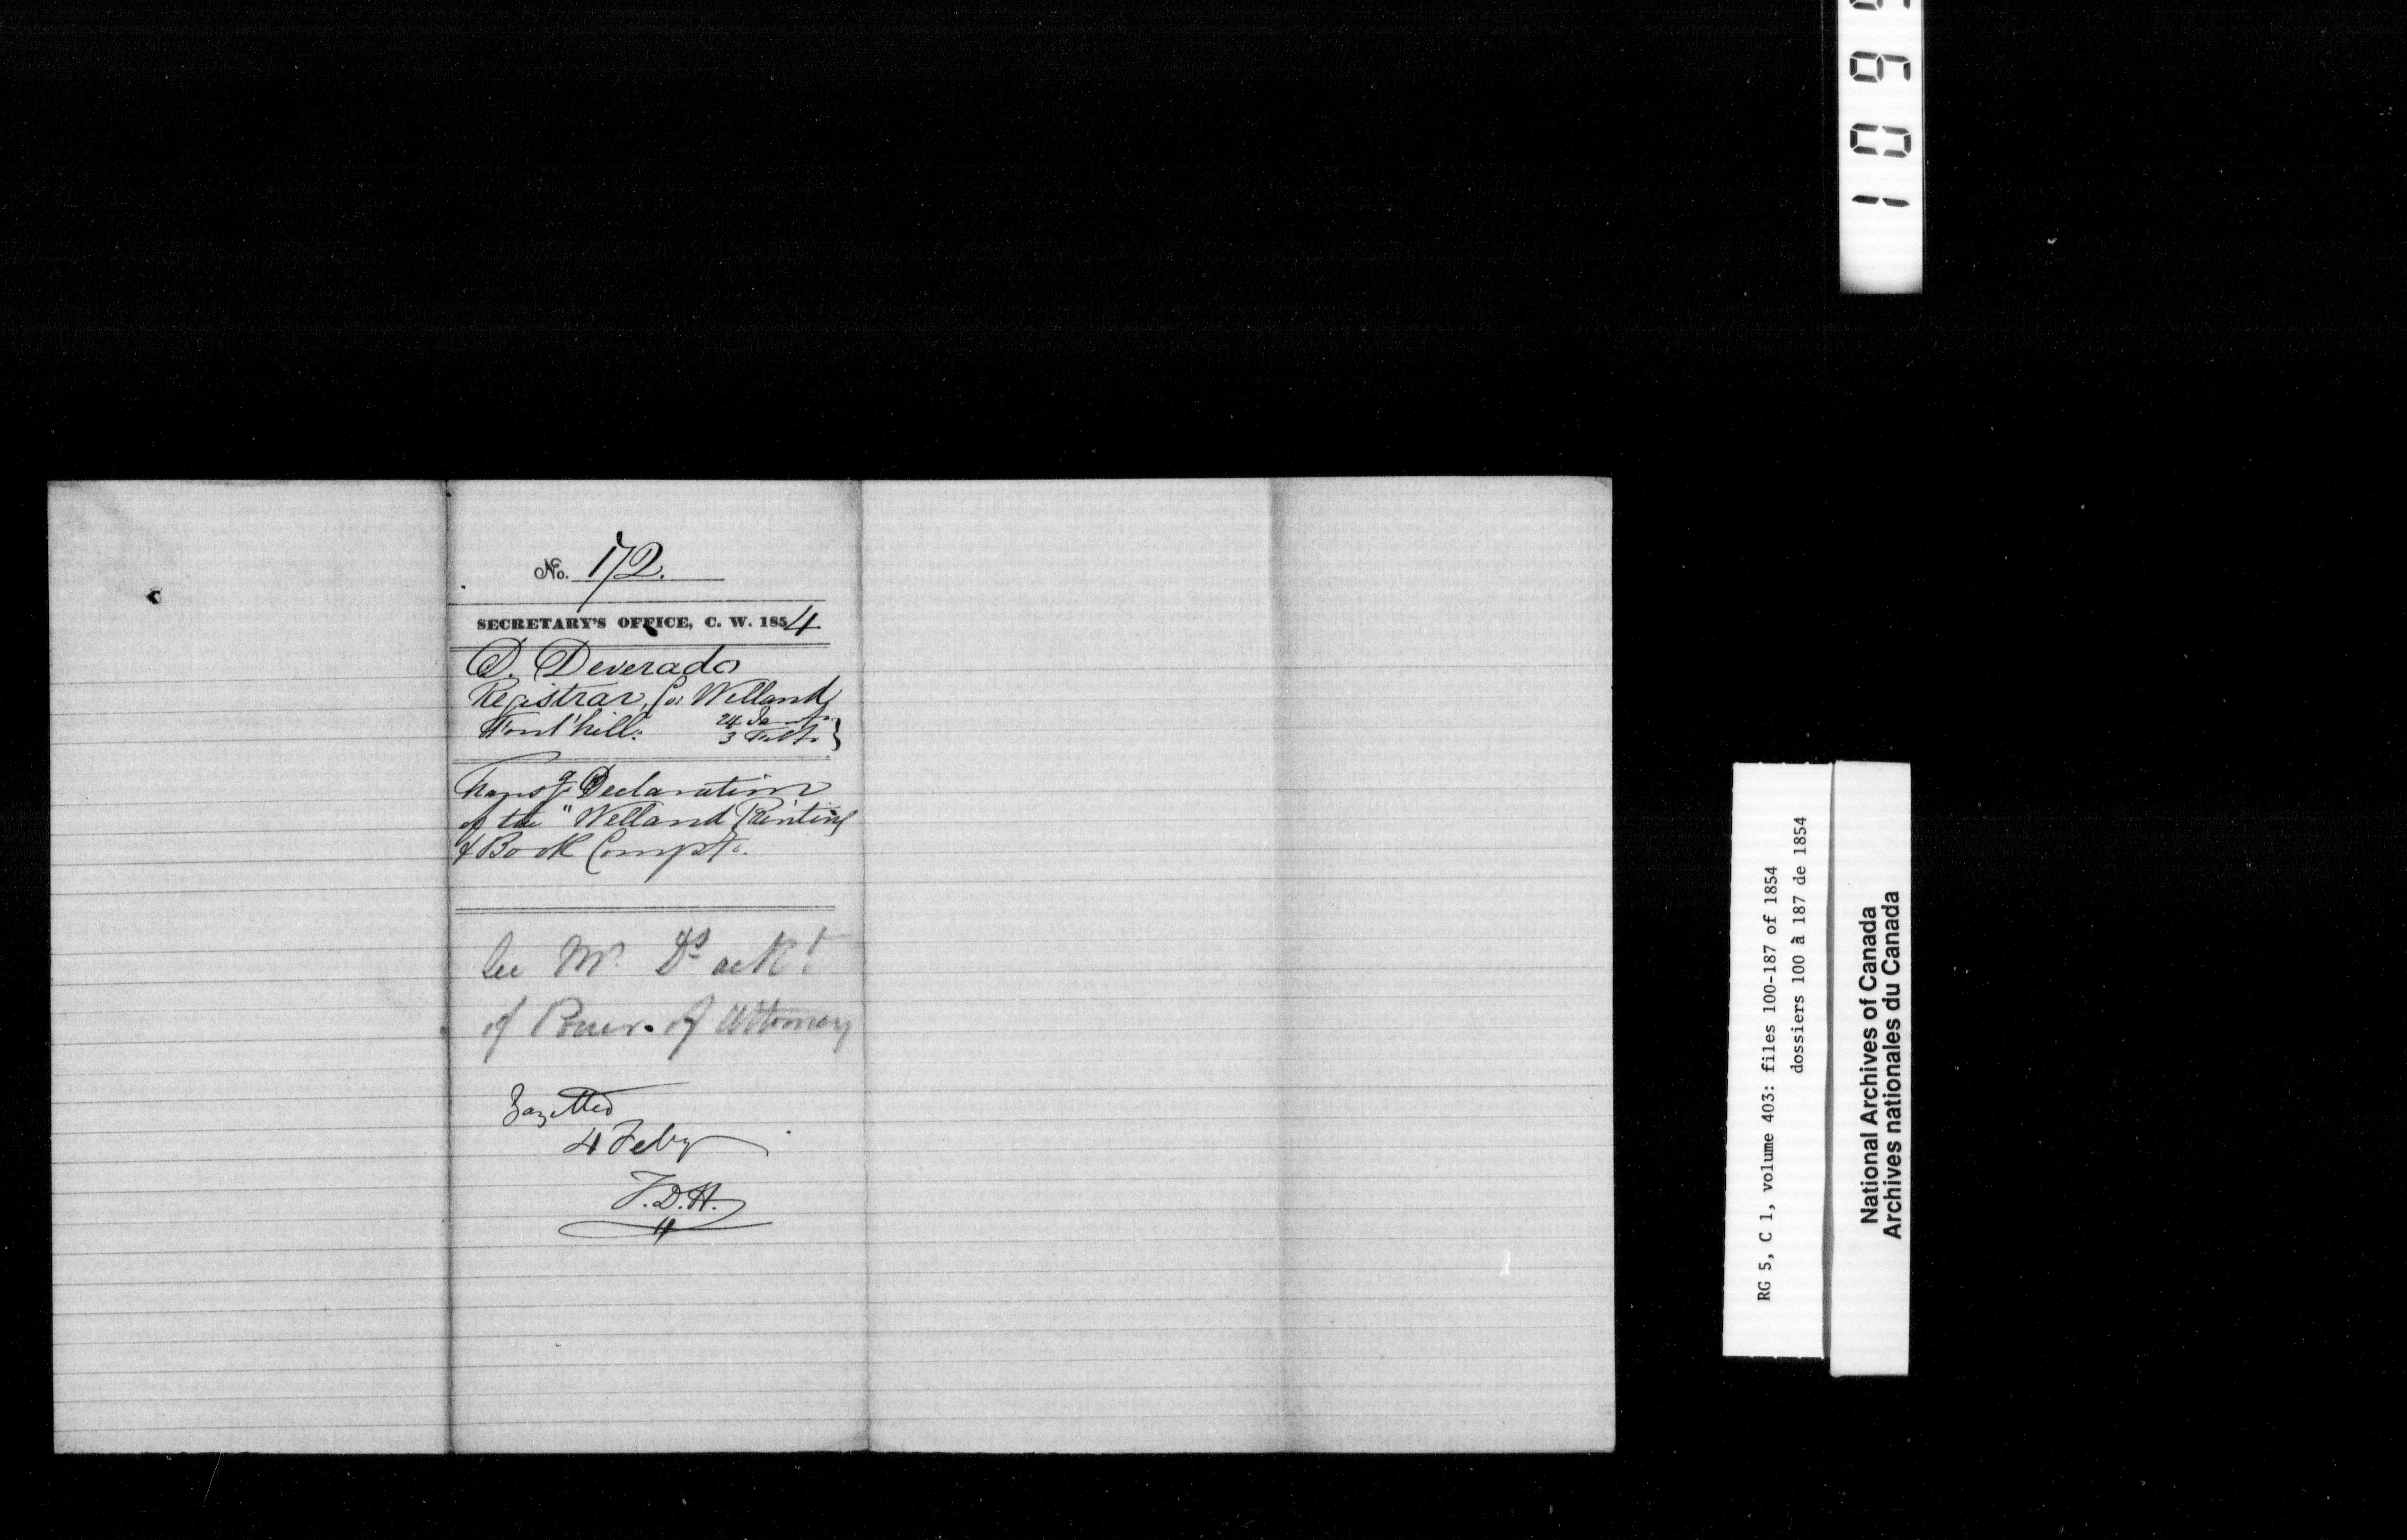 No. 172.
SECRETARY'S OFFICE, C. W. 1854
D. Deverado
Registrar, Co: Welland
Font'hill:
24 Jan
3 Feb
Transg Declaration
of the "Welland Printing
& Book Compy.
See Mr. Ds ackt
of Power of Attorney
Gazetted
4 Feby
T.D.H.
RG 5, C 1, volume 403: files 100-187 of 1854
dossiers 100 à 187 de 1854
National Archives of Canada
Archives nationales du Canada